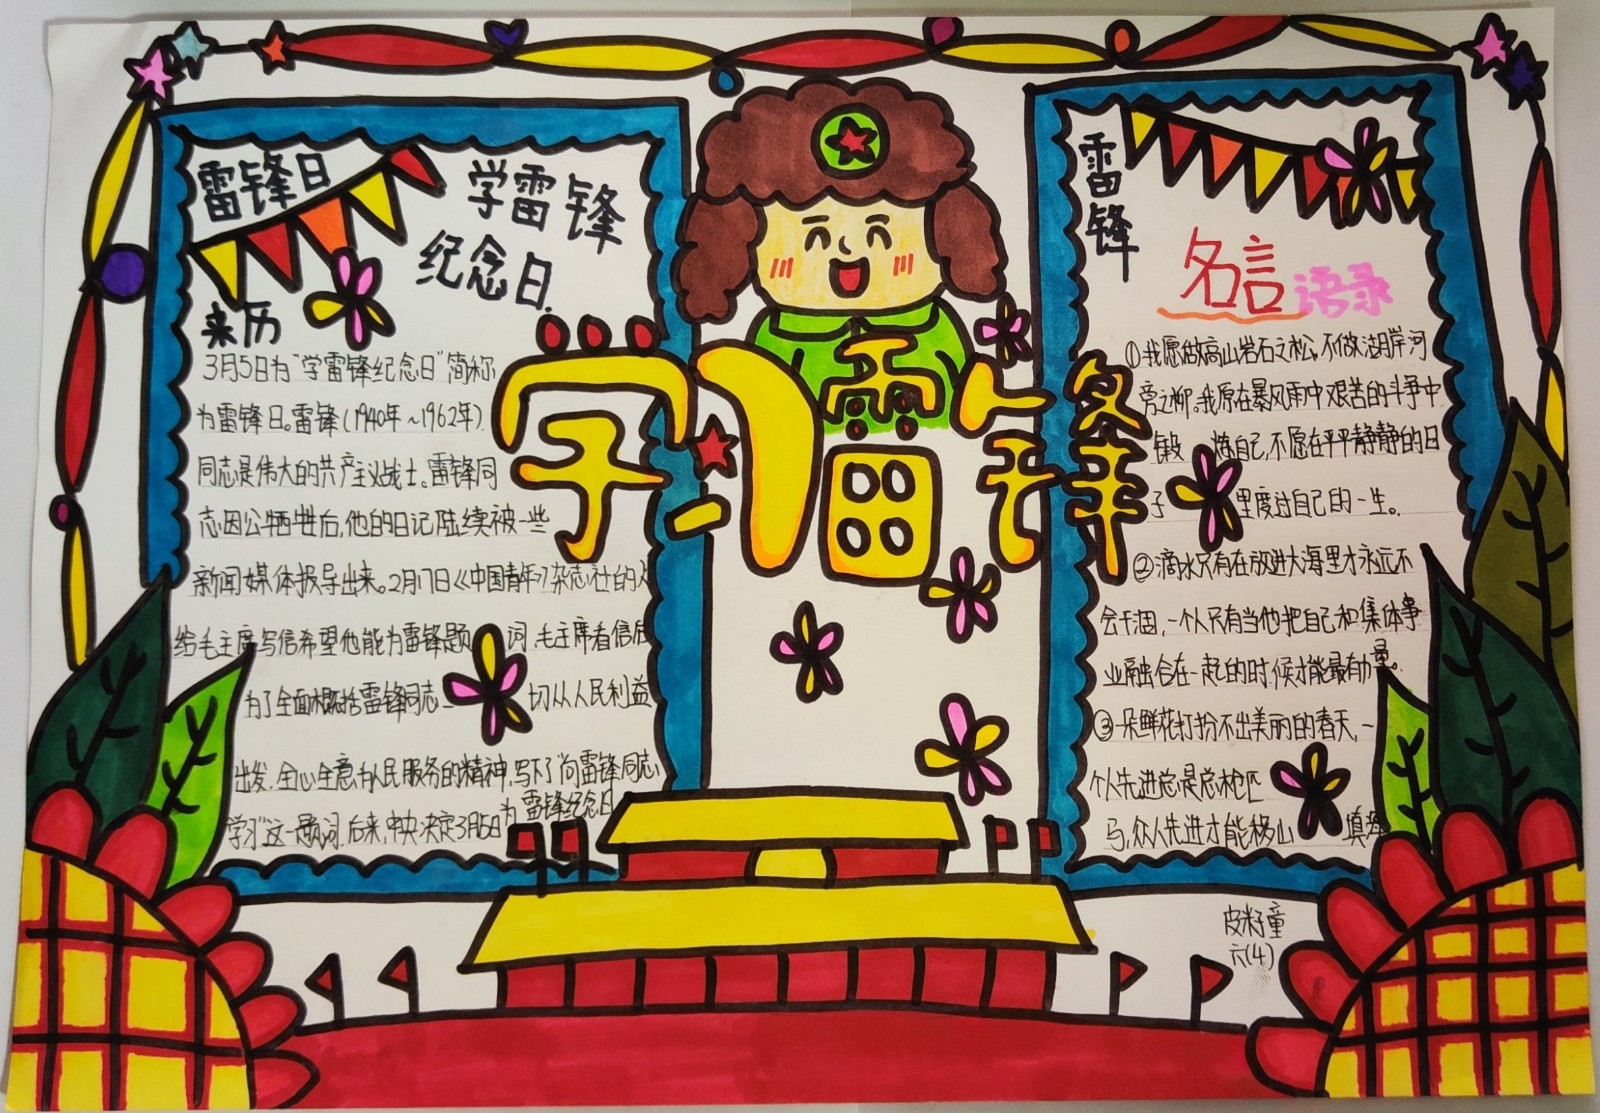 雷锋日
学雷锋
纪念日.
来历
3月5日为"学雷锋纪念日"简称
为雷锋日。雷锋(1940年~1962年)
同志是伟大的共产主义战士。雷锋同
志因公牺牲后,他的日记陆续被一些
新闻媒体报导出来。2月17日《中国青年》杂志社的人
给毛主席写信希望他能为雷锋题词.毛主席看信后
为了全面概括雷锋同志一切从人民利益
出发.全心全意为人民服务的精神,写下了"向雷锋同志
学习"这一题词.后来,中央决定3月5日为雷锋纪念日
学习雷锋
雷锋
名言语录
①我愿做高山岩石之松,不做湖岸河
旁之柳。我愿在暴风雨中艰苦的斗争中
锻炼自己,不愿在平平静静的日
子里度过自己的一生。
②滴水只有在放进大海里才永远不
会干涸,一个人只有当他把自己和集体事
业融合在一起的时候才能最有力量。
③一朵鲜花打扮不出美丽的春天,一
个人先进总是总枪匹
马,众人先进才能移山填海
皮籽童
六(4)